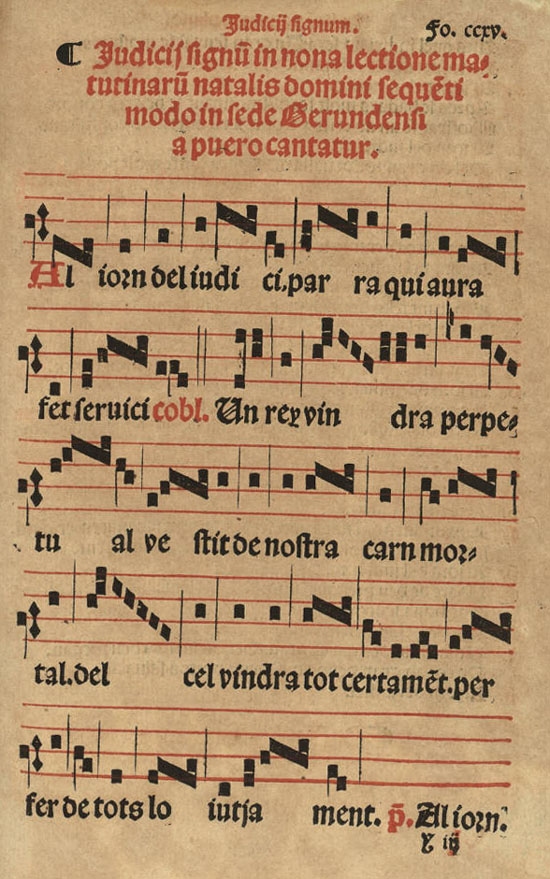 Judicij signum. Fo. ccxv.
¶ Judicij signū in nona lectione ma⸗
turinarū natalis domini sequēti
modo in sede Gerundensi
a puero cantatur.
Al iorn del iudi ci.par ra qui aura
fet seruici cobl. Un rey vin dra perpe⸗
tu al ve stit de nostra carn mor⸗
tal.del cel vindra tot certamēt.per
fer de tots lo iutja ment. p̄. Al iorn.
Y iij